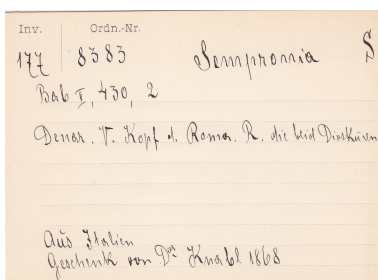 Inv. Ordn.-Nr.
177 8383 Sempronia S
Bab I, 430, 2
Denar. V. Kopf d. Roma. R. die beid Dioskuren
Aus Italien
Geschenk von Dr Knabl 1868